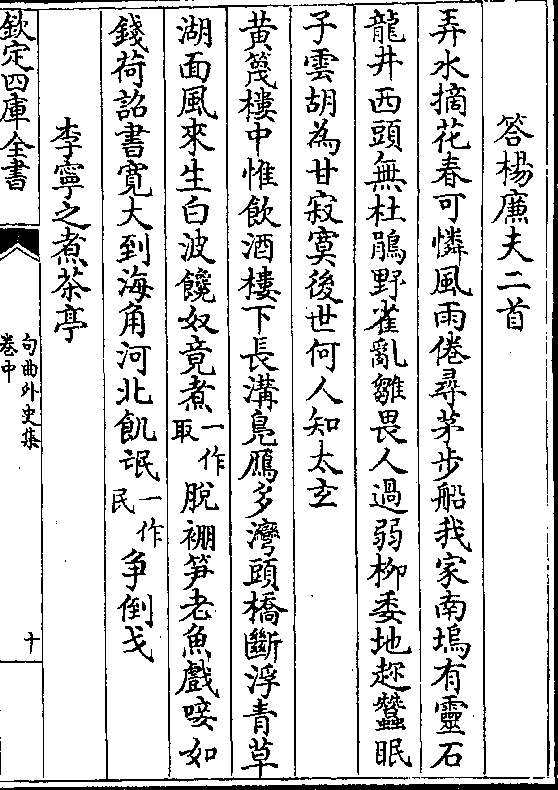 答楊廉夫二首
弄水摘花春可憐風雨倦尋茅步船我家南塢有靈石
龍井西頭無杜鵑野雀亂雛畏人過弱柳委地趂蠶眠
子雲胡為甘寂寞後世何人知太𤣥
黄篾樓中惟飲酒樓下長溝鳬鴈多灣頭橋斷浮青草
湖面風來生白波饞奴竟煮一作取脫裯笋老魚戲唼如
錢荷詔書寛大到海角河北飢氓一作民争倒戈
李寧之煮茶亭
欽定四庫全書
句曲外史集
卷中
十